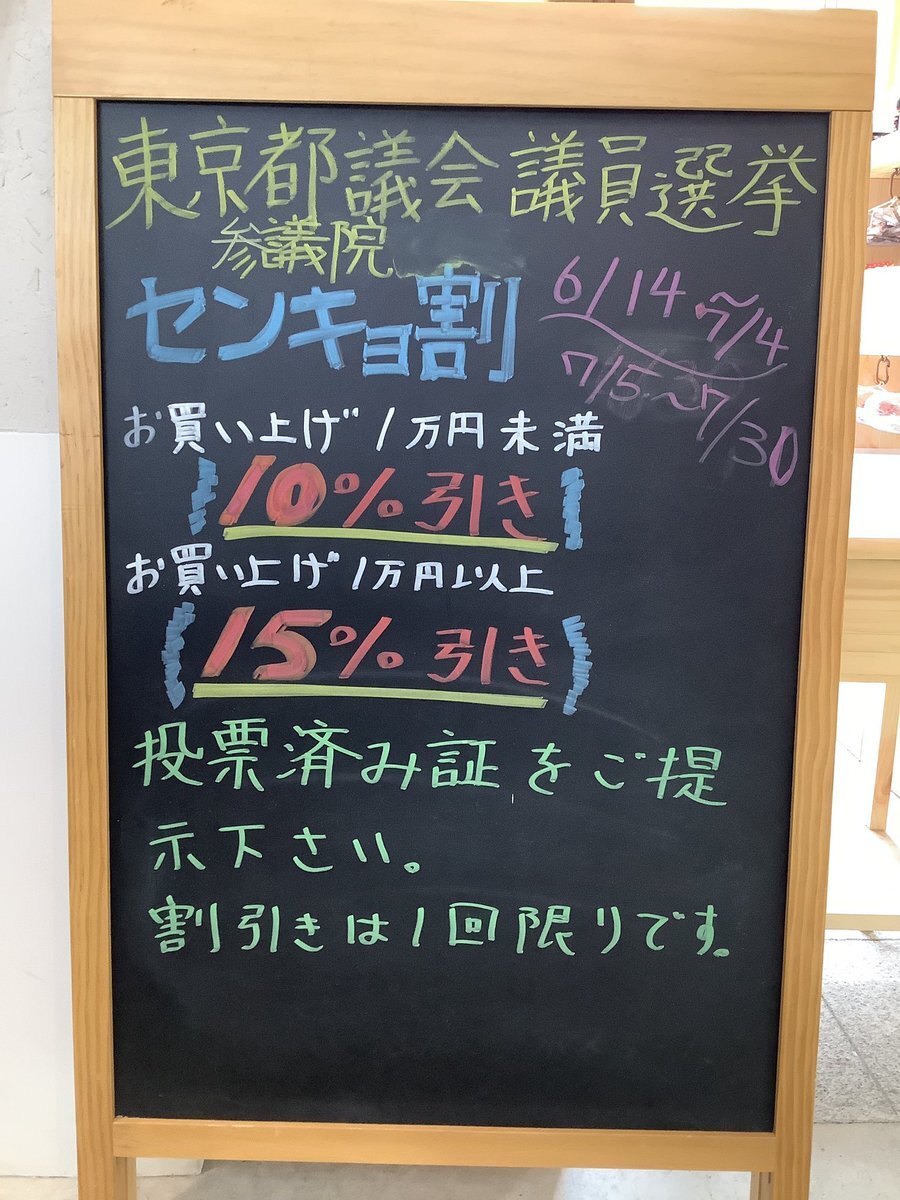 東京都議会議員選挙
参議院
センキョ割
6/14~7/4
7/5~7/30
お買い上げ1万円未満
10%引き
お買い上げ1万円以上
15%引き
投票済み証をご提
示下さい。
割引きは1回限りです。